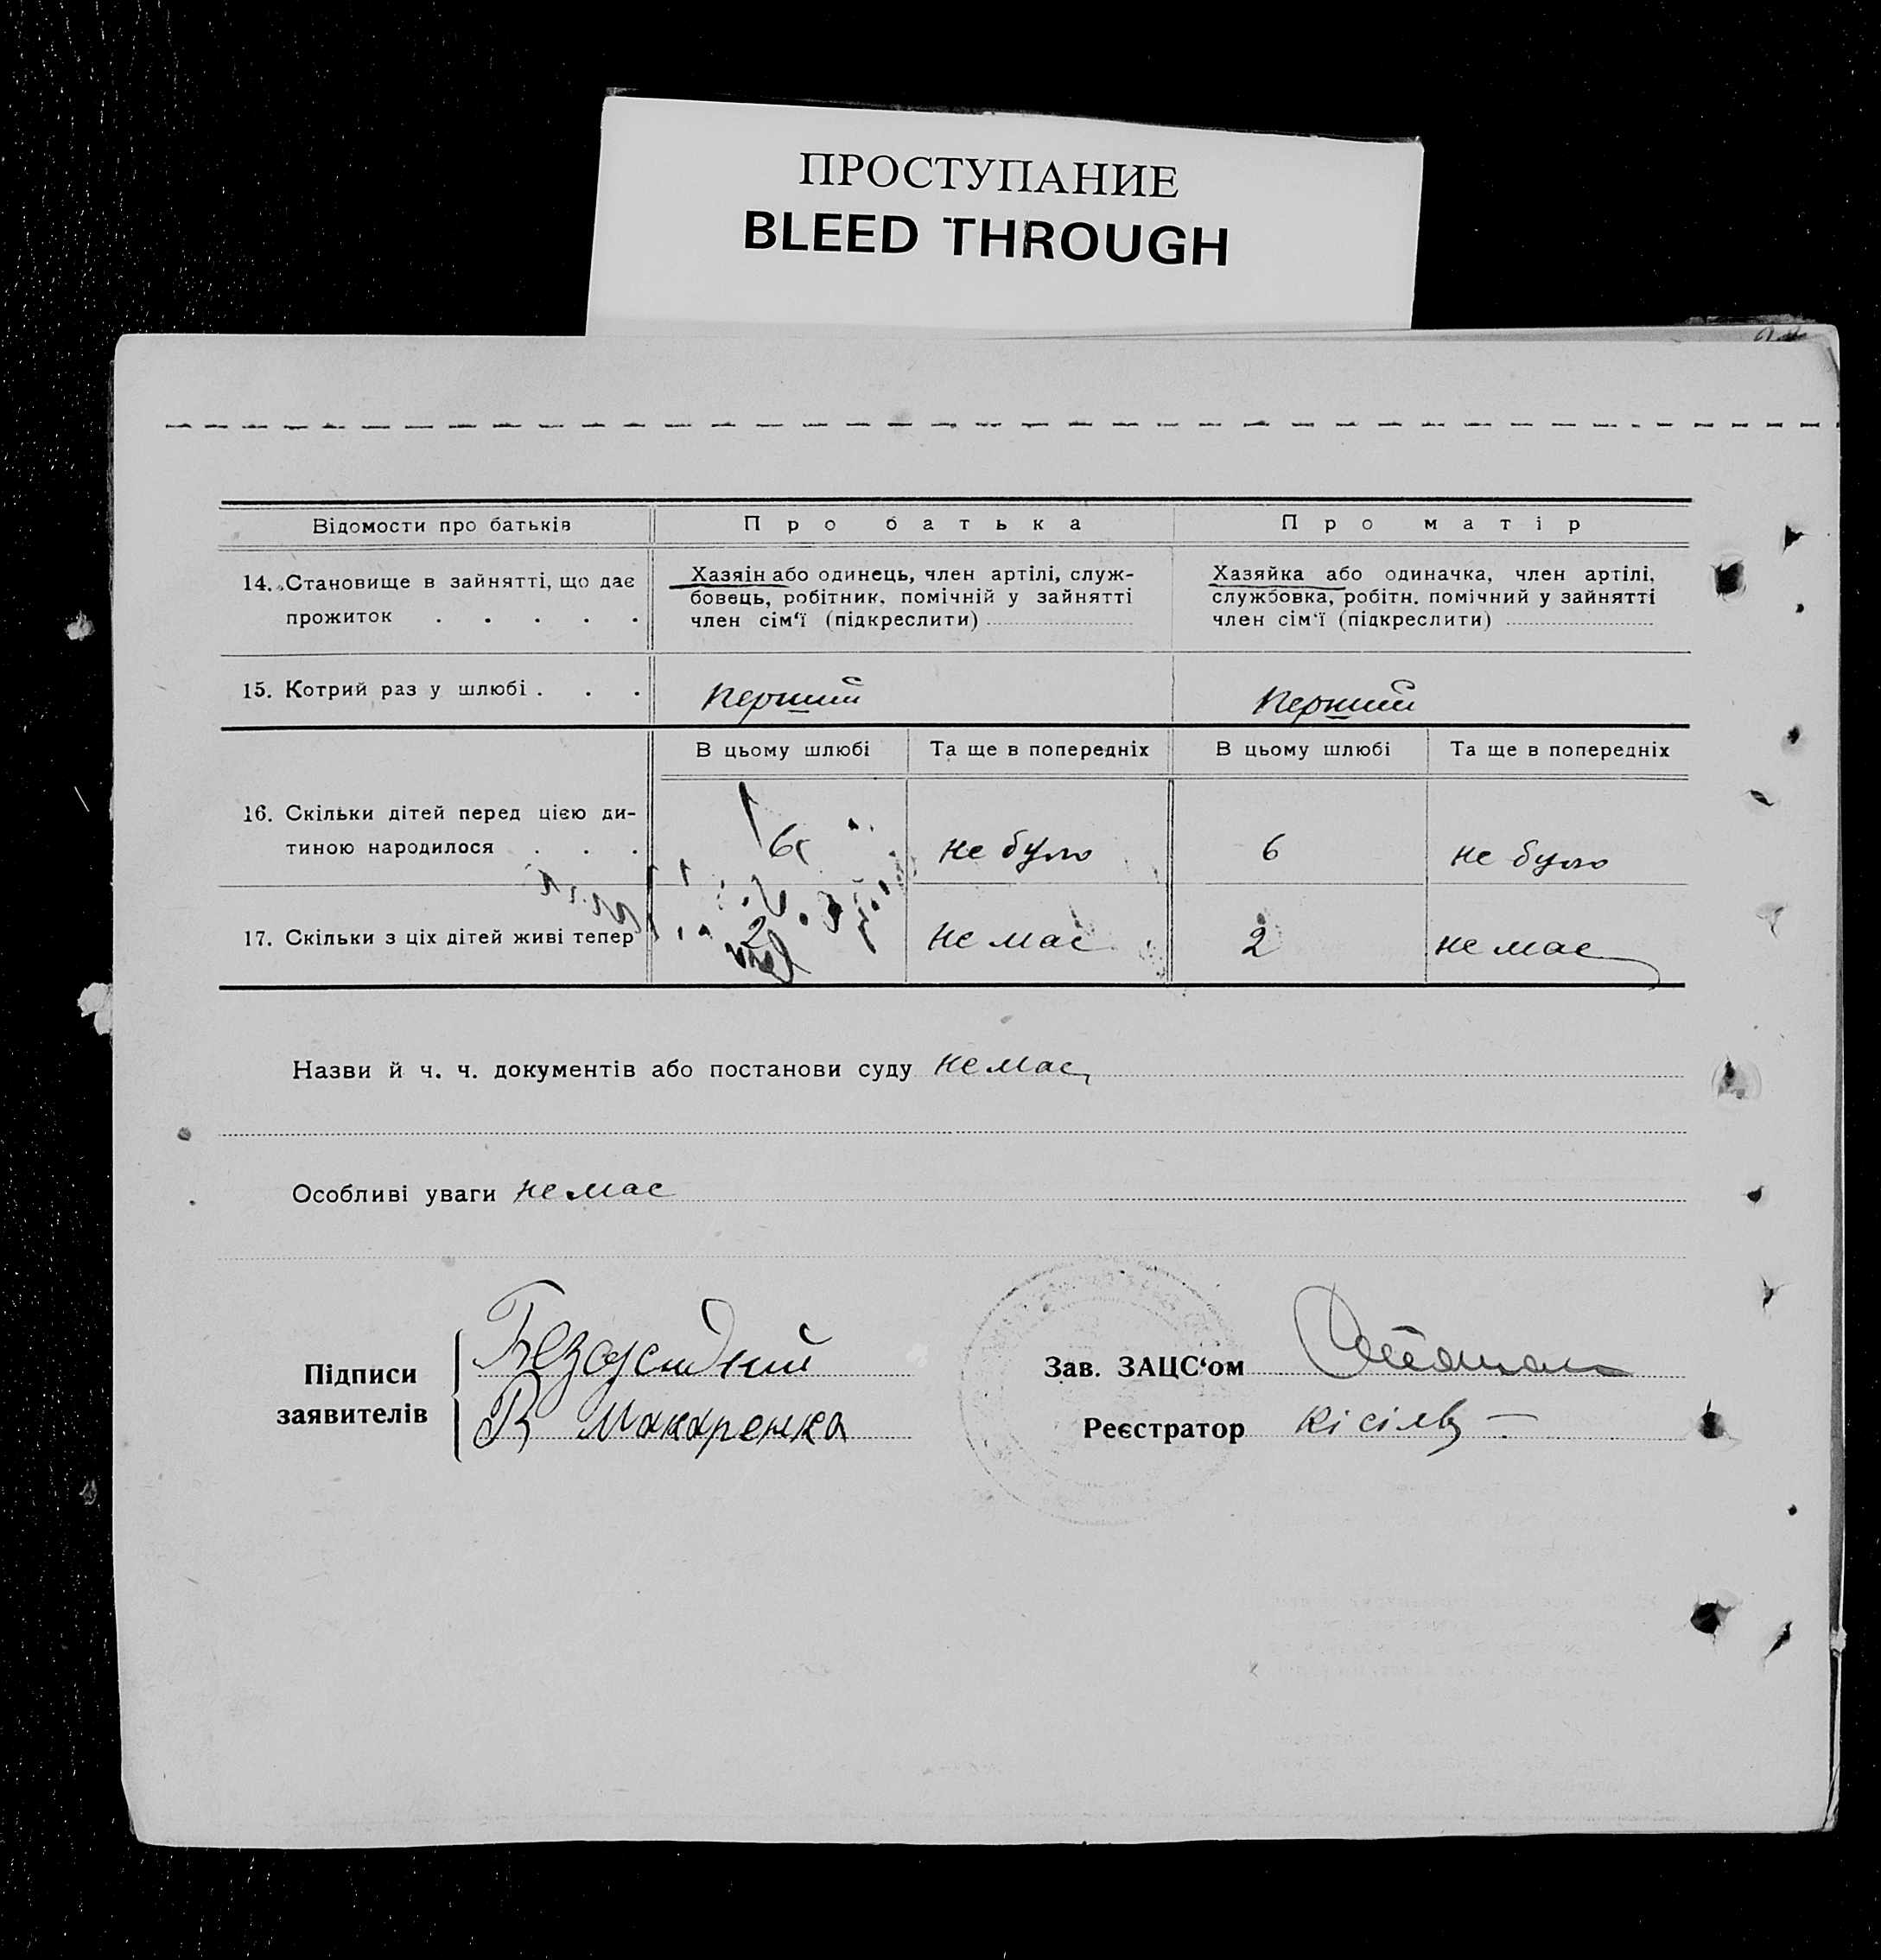 ПРОСТУПАНИЕ
BLEED THROUGH
Відомости про батьків
Про батька
Про матір
14. Становище в зайнятті, що дає
прожиток . . . . .
Хазяін або одинець, член артілі, служ-
бовець, робітник, помічній у зайнятті
член сім'ї (підкреслити)
Хазяйка або одиначка, член артілі,
службовка, робітн. помічний у зайнятті
член сім'ї (підкреслити)
15. Котрий раз у шлюбі . . .
перший
перший
В цьому шлюбі
Та ще в попередніх
В цьому шлюбі
Та ще в попередніх
16. Скільки дітей перед цією ди-
тиною народилося . . .
6
не було
6
не було
17. Скільки з ціх дітей живі тепер
2
не має
2
не має
Назви й ч. ч. документів або постанови суду не має
Особливі уваги не має
Підписи
заявителів
В Макаренка
Зав. ЗАЦС‘ом
Реєстратор Кісіль